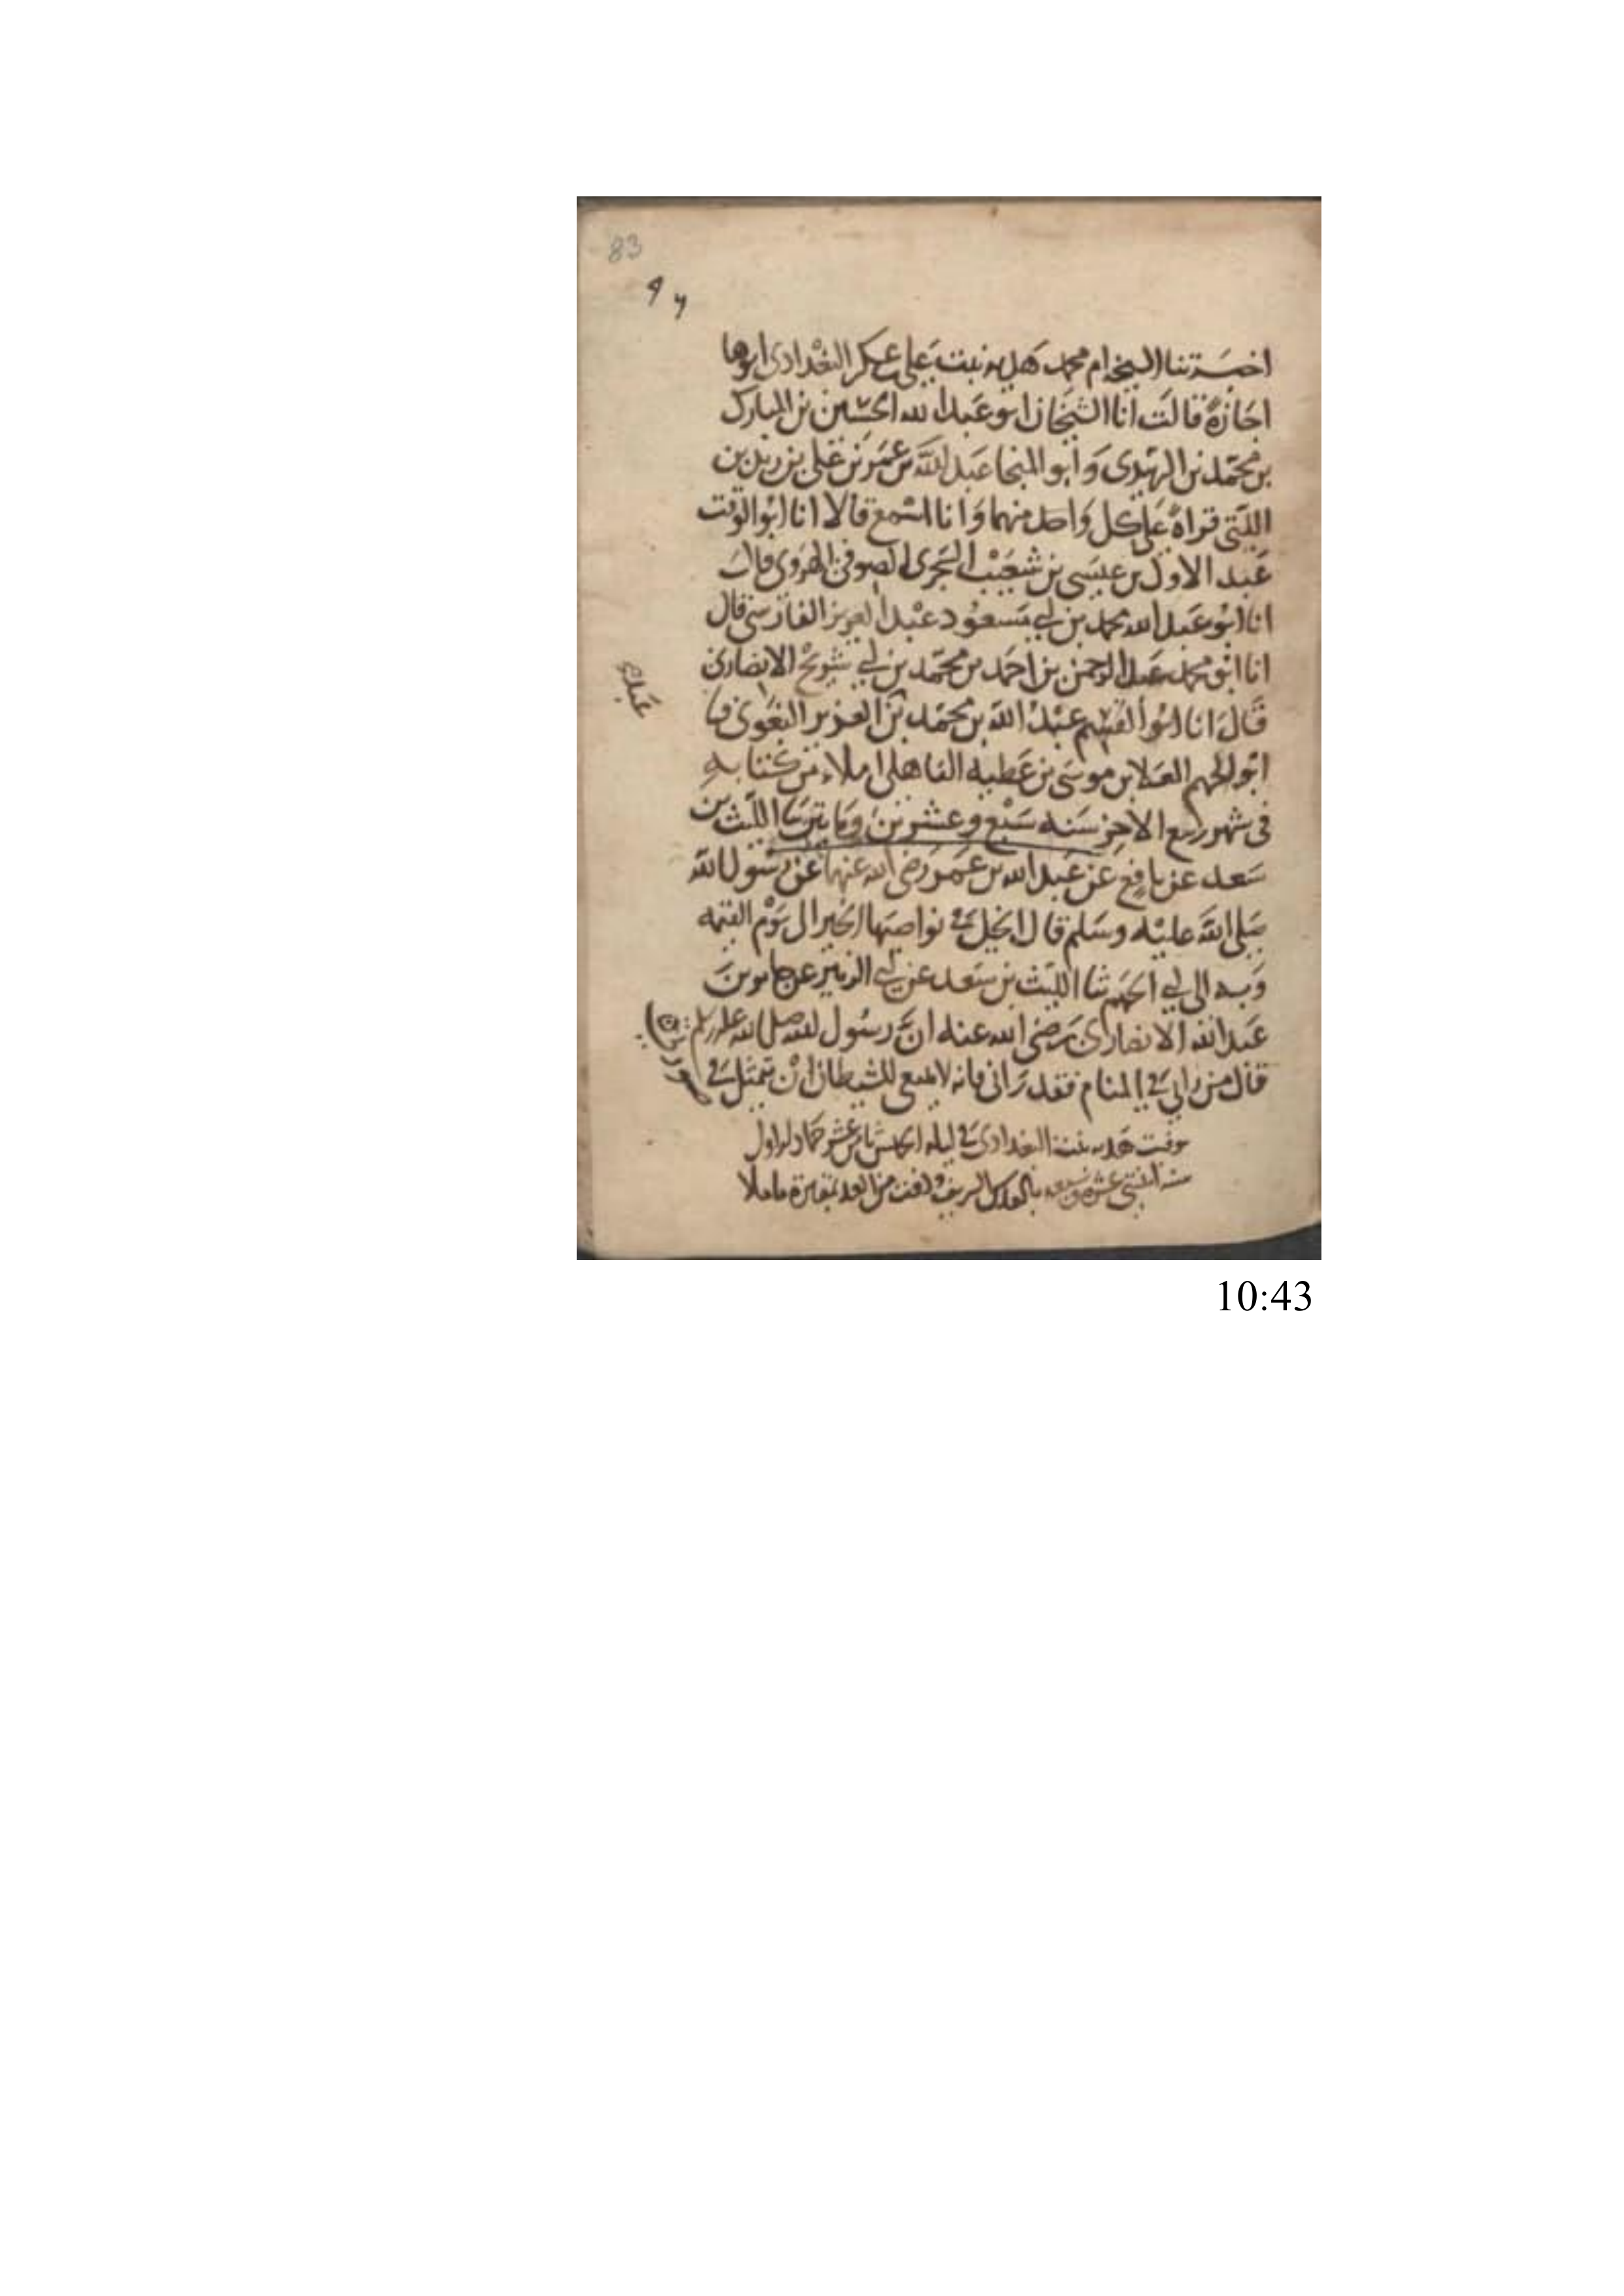 83
٩٦
اخبرتنا الشيخه ام محمد هديه بنت علي بن عسكر البغدادي ابوها
اجازة قالت انا الشيخان ابو عبد الله الحسين بن المبارك
بن محمد بن الزبيدي وابو المنجا عبد الله بن عمر بن علي بن زيد بن
اللتي قراة على كل واحد منهما وانا اسمع قالا انا ابو الوقت
عبد الاول بن عيسى بن شعيب السجزي الصوفي الهروي قال
انا ابو عبد الله محمد بن ابي مسعود عبد العزيز الفارسي قال
انا ابو محمد عبد الرحمن بن احمد بن محمد بن ابي شريح الانصاري
قال انا ابو القسم عبد الله بن محمد بن العزيز البغوي ثنا
عبد
ابو الجهم العلا بن موسى بن عطيه الباهلي املاء من كتابه
في شهر ربيع الاخر سنه سبع وعشرين ومايتين ثنا الليث بن
سعد عن نافع عن عبد الله بن عمر رضي الله عنهما عن رسول الله
صلى الله عليه وسلم قال الخيل في نواصيها الخير الى يوم القيمه
وبه الى ابي الجهم ثنا الليث بن سعد عن ابي الزبير عن جابر بن
عبد الله الانصاري رضي الله عنه ان رسول الله صلى الله عليه وسلم
قال من راني في المنام فقد راني فانه لا ينبغي للشيطان ان يتمثل في
صورتي
توفيت هديه بنت البغدادي في ليله الخميس ثامن عشر جماد الاول
سنه اثنتي عشره وسبعمه بالقدس الشريف ودفنت من الغد بمقبرة ماملا
10:43